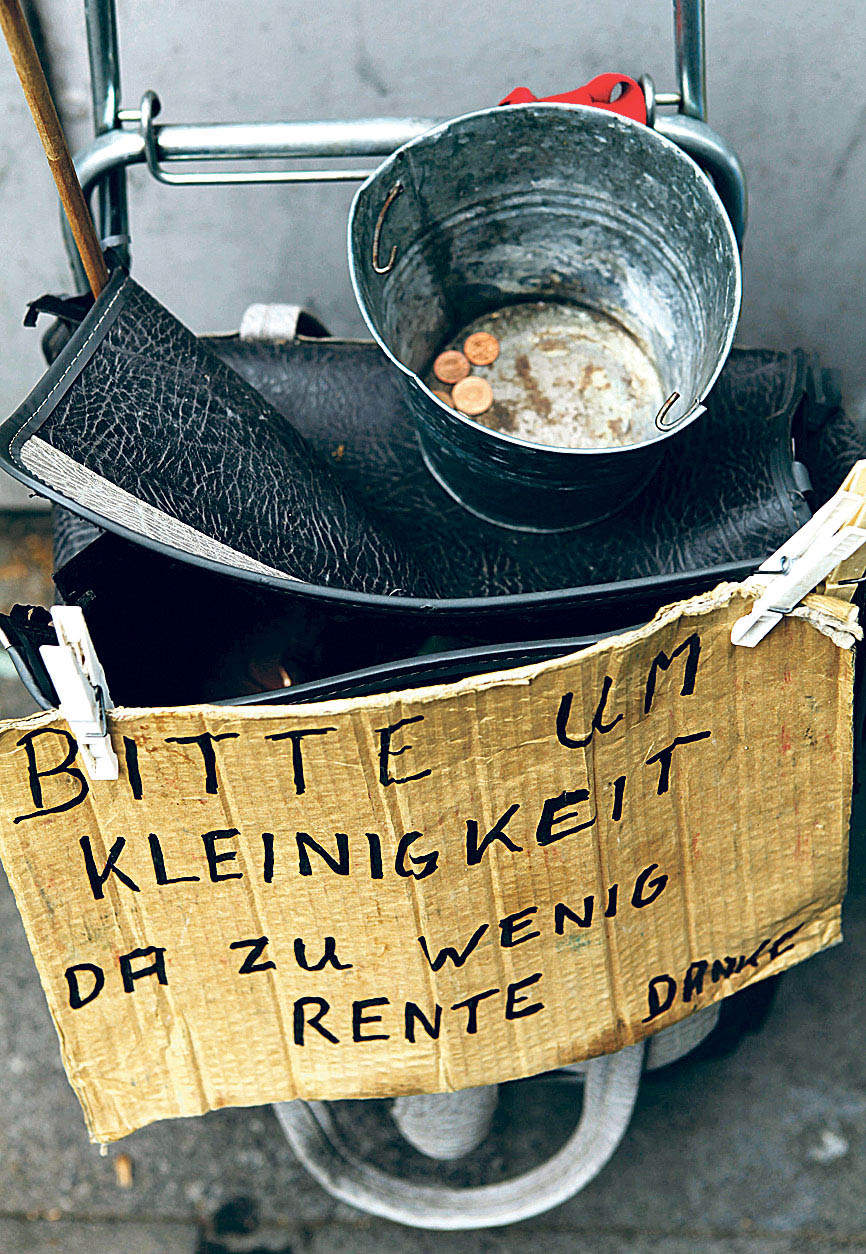 BITTE UM
KLEINIGKEIT
DA ZU WENIG
RENTE DANKE